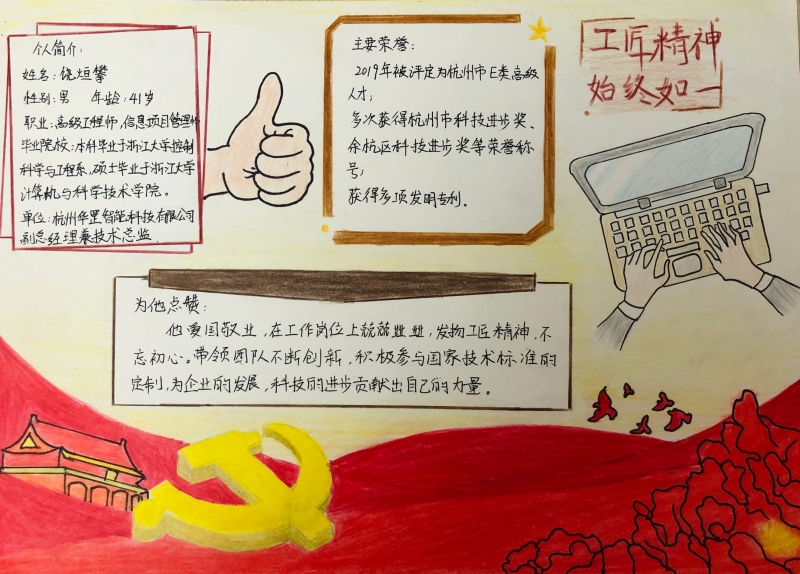 个人简介：
姓名：饶烜攀
性别：男 年龄：41岁
职业：高级工程师，信息项目管理师
毕业院校：本科毕业于浙江大学控制
科学与工程系，硕士毕业于浙江大学
计算机与科学技术学院。
单位：杭州华罡智能科技有限公司
副总经理兼技术总监
主要荣誉：
2019年被评定为杭州市E类高级
人才；
多次获得杭州市科技进步奖、
余杭区科技进步奖等荣誉称
号；
获得多项发明专利。
工匠精神
始终如一
为他点赞：
他爱国敬业，在工作岗位上兢兢业业，发扬工匠精神，不
忘初心。带领团队不断创新，积极参与国家技术标准的
定制，为企业的发展，科技的进步贡献出自己的力量。